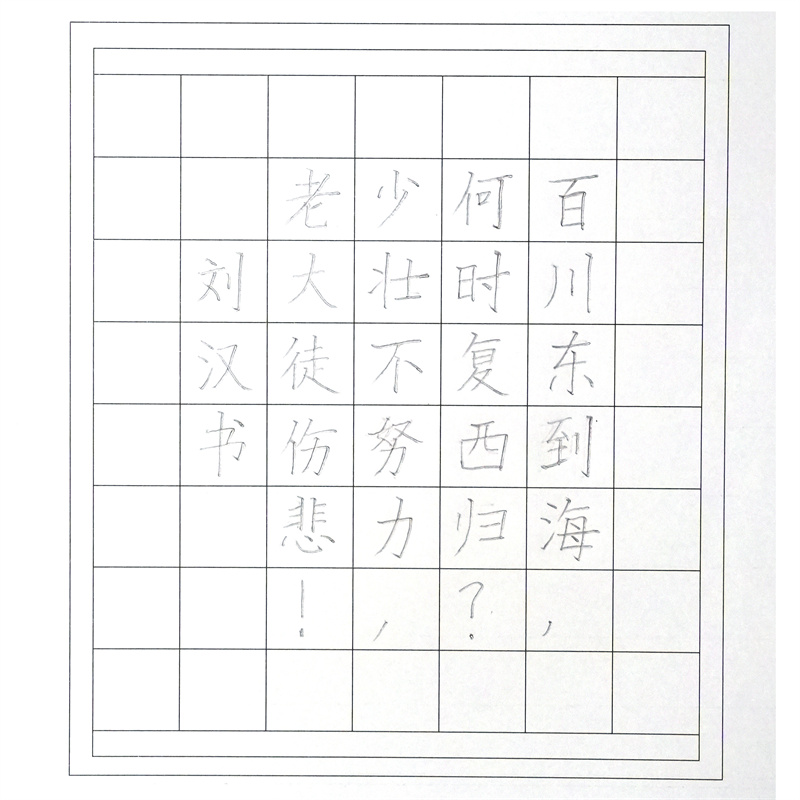 百川东到海，
何时复西归？
少壮不努力，
老大徒伤悲！
刘汉书